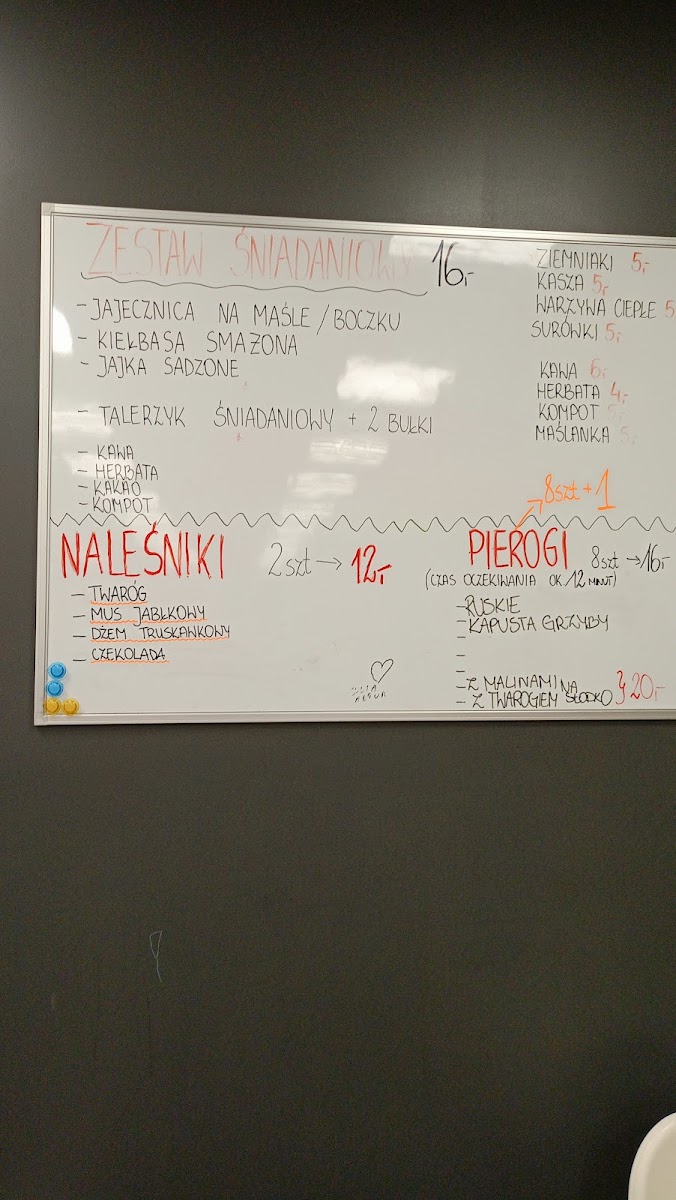 ZESTAW ŚNIADANIOWY 16,-
- JAJECZNICA NA MAŚLE / BOCZKU
- KIEŁBASA SMAŻONA
- JAJKA SADZONE
- TALERZYK ŚNIADANIOWY + 2 BUŁKI
- KAWA
- HERBATA
- KAKAO
- KOMPOT
ZIEMNIAKI 5,-
KASZA 5,-
WARZYWA CIEPŁE 5
SURÓWKI 5,-
KAWA 6,-
HERBATA 4,-
KOMPOT 5,-
MAŚLANKA 5,-
NALEŚNIKI 2szt → 12,-
- TWARÓG
- MUS JABŁKOWY
- DŻEM TRUSKAWKOWY
- CZEKOLADA
8szt + 1
PIEROGI 8szt → 16,-
(CZAS OCZEKIWANIA OK 12 MINUT)
- RUSKIE
- KAPUSTA GRZYBY
-
-
-
- Z MALINAMI NA
- Z TWAROGIEM SŁODKO } 20,-